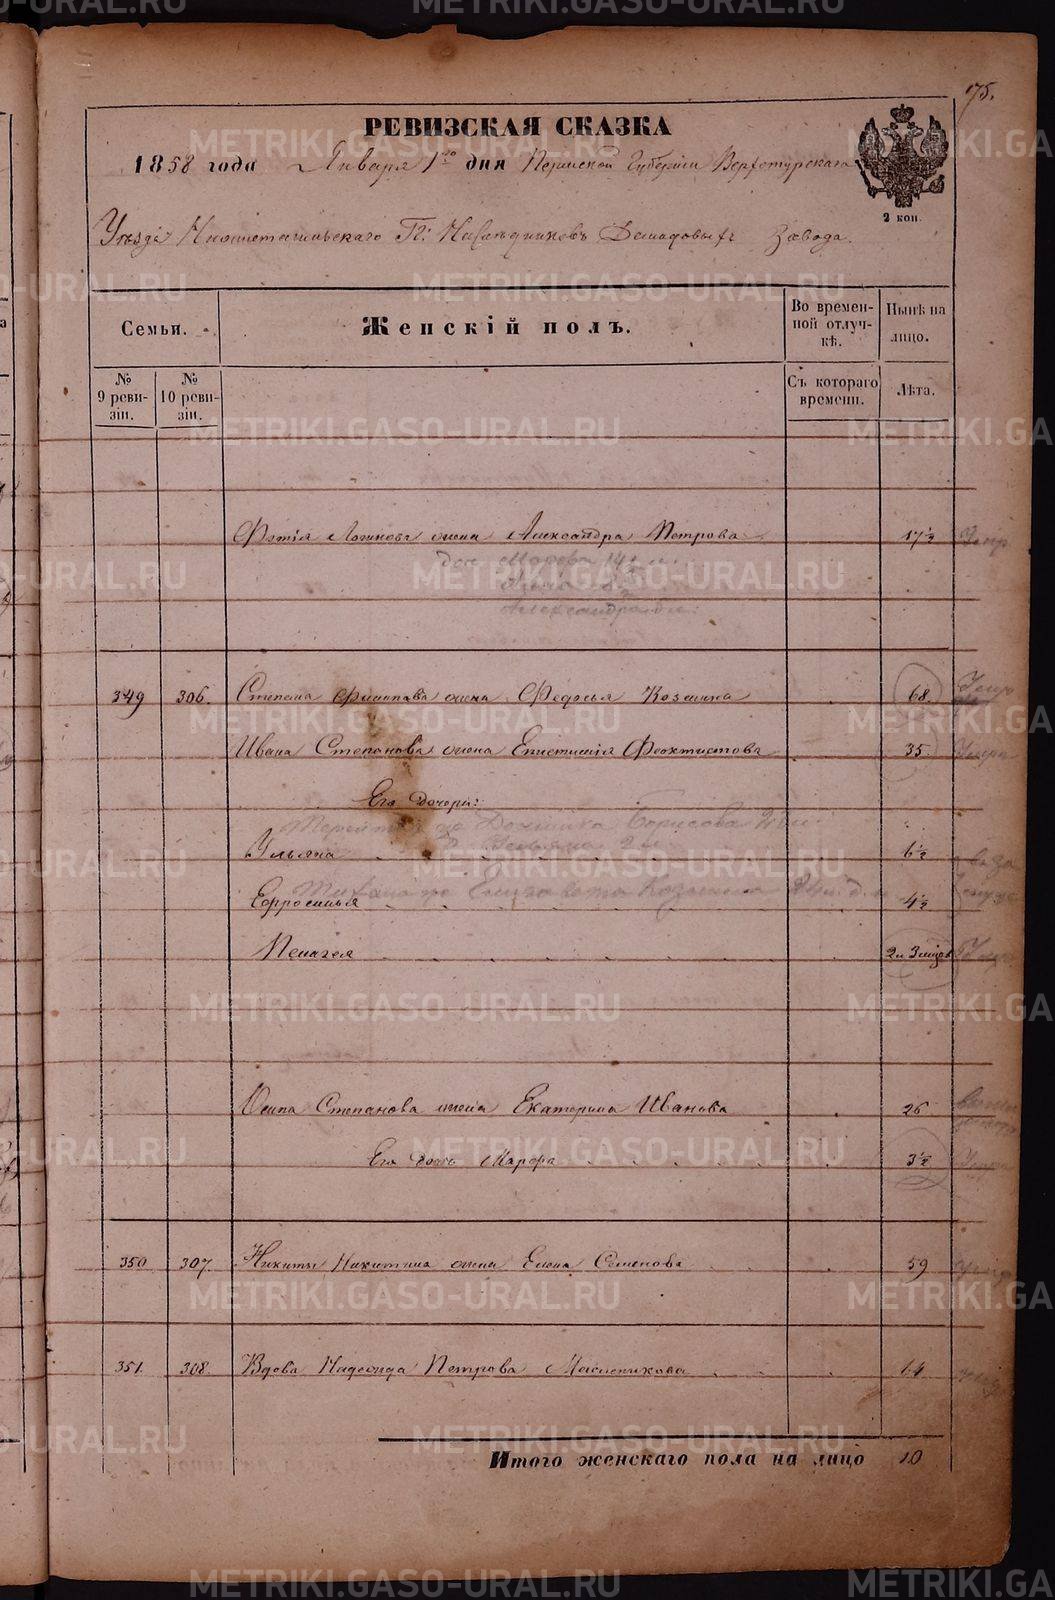 75.
РЕВИЗСКАЯ СКАЗКА
1858 года Января 1го дня Пермской Губернии Верхотурскаго
2 коп.
Уезда Нижнетагильскаго Гг: Наследниковъ Демидовыхъ Завода.
Семьи.
Женскій полъ.
Во времен-
ной отлуч-
кѣ.
Нынѣ на
лицо.
№
9 реви-
зіи.
№
10 реви-
зіи.
Съ котораго
времени.
Лѣта.
Фотія Логинова жена Александра Петрова 17½
349 306. Степана Филипова жена Федосья Козмина 68.
Ивана Степанова жена Епистимія Феоктистова 35
Его Дочери:
Ульяна 6½
Ефросинья 4½
Пелагея 2 и 3 мѣсяц
Осипа Степанова жена Екатерина Иванова 26
Его дочь Марфа 3½
350 307. Никиты Никитина жена Елена Семенова 59
351. 308. Вдова Надежда Петрова Масленикова 64
Итого женскаго пола на лицо 10
METRIKI.GASO-URAL.RU